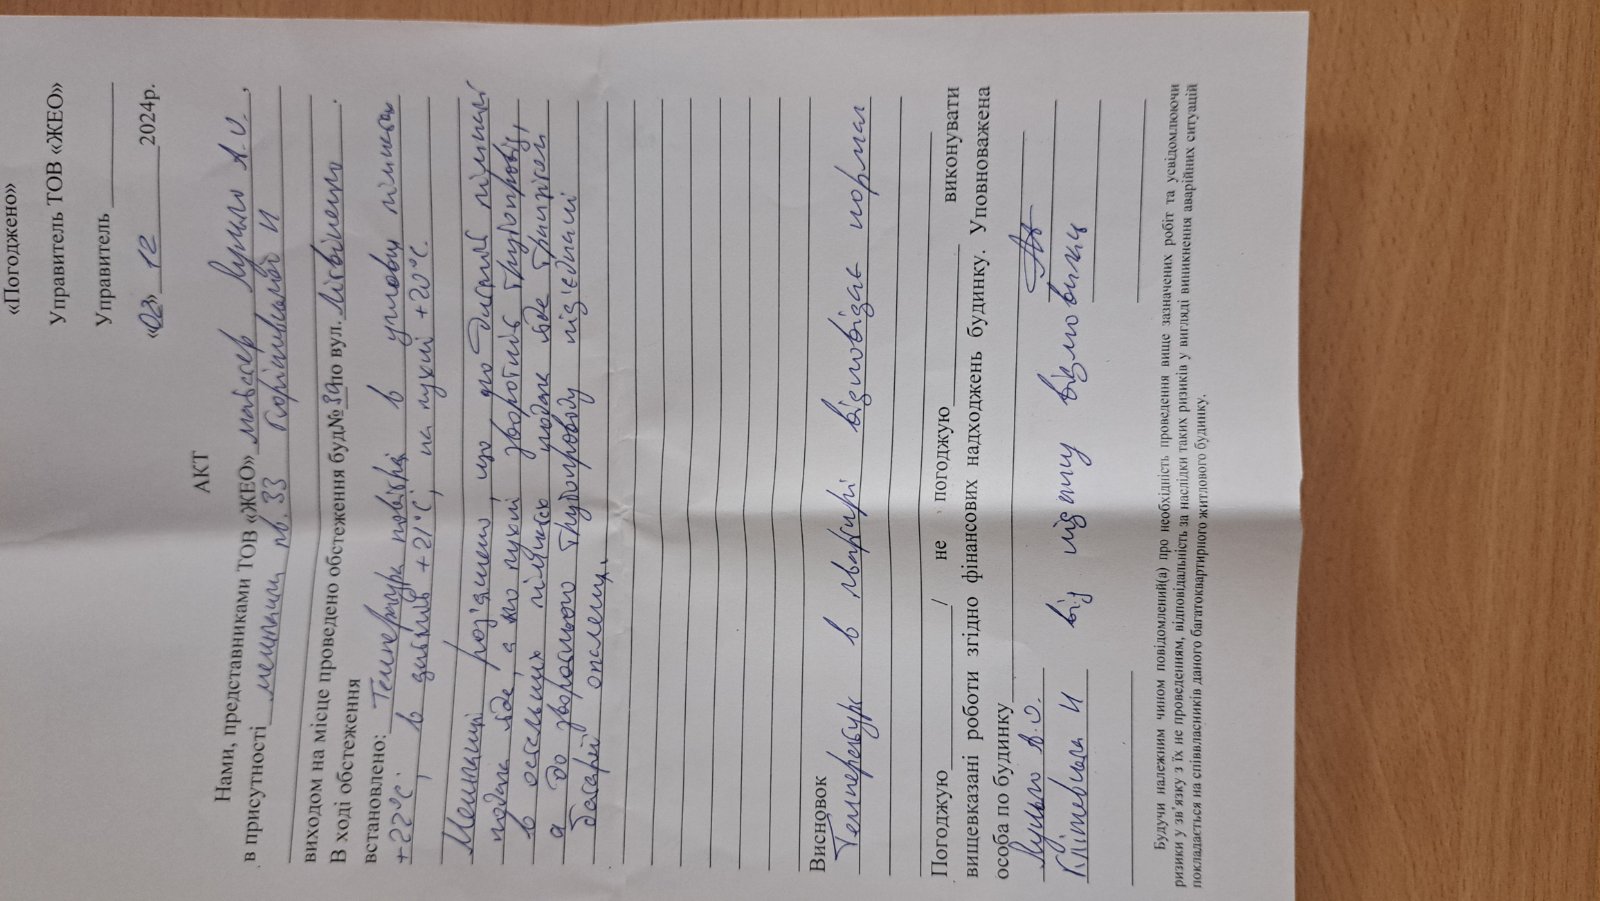 «Погоджено»
Управитель ТОВ «ЖЕО»
Управитель
«03» 12 2024р.
АКТ
Нами, представниками ТОВ «ЖЕО» майстер А.О.,
в присутності мешканці кв. 33 И
виходом на місце проведено обстеження буд№ по вул.
В ході обстеження
встановлено: Температура повітря в кімнати
+22°С, в +21°С, на кухні +20°С.
Мешканці роз'яснено, що до кімнаті
подача йде, а по кухні зворотній трубопровід,
в кімнатах подача йде
а до зворотнього трубопроводу під'єднані
батареї опалення.
Висновок
Температура в квартирі відповідає нормам
Погоджую / не погоджую виконувати
вищевказані роботи згідно фінансових надходжень будинку. Уповноважена
особа по будинку
А.О.
И від підпису відмовилась
Будучи належним чином повідомлений(а) про необхідність проведення вище зазначених робіт та усвідомлюючи
ризики у зв'язку з їх не проведенням, відповідальність за наслідки таких ризиків у вигляді виникнення аварійних ситуацій
покладається на співвласників даного багатоквартирного житлового будинку.